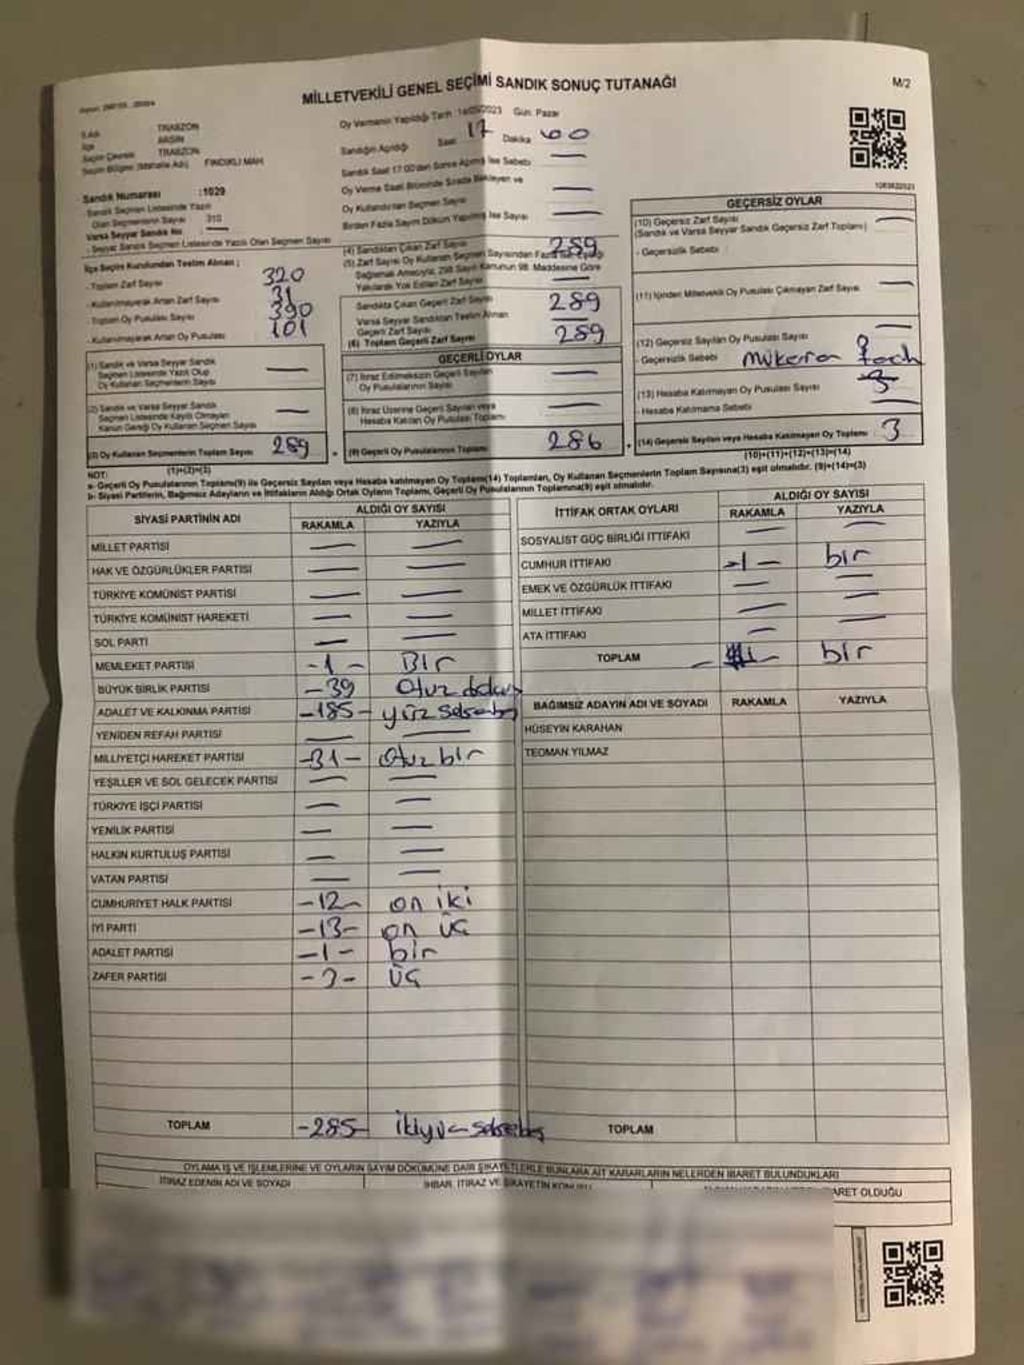 MİLLETVEKİLİ GENEL SEÇİMİ SANDIK SONUÇ TUTANAĞI
M/2
İl Adı TRABZON
İlçe ARSİN
Seçim Çevresi TRABZON
Seçim Bölgesi (Mahalle Adı) FINDIKLI MAH.
Oy Vermenin Yapıldığı Tarih : 14/05/2023 Gün: Pazar
Sandığın Açıldığı Saat 17 Dakika 00
Sandık Saat 17:00'den Sonra Açılmış İse Sebebi —
Oy Verme Saati Bitiminde Sırada Bekleyen ve
Oy Kullandırılan Seçmen Sayısı —
Birden Fazla Sayım Döküm Yapılmış İse Sayısı —
Sandık Numarası :1029
- Sandık Seçmen Listesinde Yazılı
Olan Seçmenlerin Sayısı 310
Varsa Seyyar Sandık No —
- Seyyar Sandık Seçmen Listesinde Yazılı Olan Seçmen Sayısı
İlçe Seçim Kurulundan Teslim Alınan ;
- Toplam Zarf Sayısı 320
- Kullanılmayarak Artan Zarf Sayısı 31
- Toplam Oy Pusulası Sayısı 390
- Kullanılmayarak Artan Oy Pusulası 101
(1) Sandık ve Varsa Seyyar Sandık
Seçmen Listesinde Yazılı Olup
Oy Kullanan Seçmenlerin Sayısı —
(2) Sandık ve Varsa Seyyar Sandık
Seçmen Listesinde Kayıtlı Olmayan
Kanun Gereği Oy Kullanan Seçmen Sayısı —
(3) Oy Kullanan Seçmenlerin Toplam Sayısı 289
(1)+(2)=(3)
(4) Sandıktan Çıkan Zarf Sayısı 289
(5) Zarf Sayısı Oy Kullanan Seçmen Sayısından Fazla ise, Eşitliği
Sağlamak Amacıyla, 298 Sayılı Kanunun 98. Maddesine Göre
Yakılarak Yok Edilen Zarf Sayısı —
Sandıkta Çıkan Geçerli Zarf Sayısı 289
Varsa Seyyar Sandıktan Teslim Alınan
Geçerli Zarf Sayısı —
(6) Toplam Geçerli Zarf Sayısı 289
GEÇERLİ OYLAR
(7) İtiraz Edilmeksizin Geçerli Sayılan
Oy Pusulalarının Sayısı —
(8) İtiraz Üzerine Geçerli Sayılan veya
Hesaba Katılan Oy Pusulası Toplamı —
(9) Geçerli Oy Pusulalarının Toplamı 286
GEÇERSİZ OYLAR
(10) Geçersiz Zarf Sayısı —
(Sandık ve Varsa Seyyar Sandık Geçersiz Zarf Toplamı)
- Geçersizlik Sebebi
(11) İçinden Milletvekili Oy Pusulası Çıkmayan Zarf Sayısı —
(12) Geçersiz Sayılan Oy Pusulası Sayısı —
- Geçersizlik Sebebi
3
(13) Hesaba Katılmayan Oy Pusulası Sayısı
- Hesaba Katılmama Sebebi —
(14) Geçersiz Sayılan veya Hesaba Katılmayan Oy Toplamı 3
(10)+(11)+(12)+(13)=(14)
NOT:
a- Geçerli Oy Pusulalarının Toplamı(9) ile Geçersiz Sayılan veya Hesaba katılmayan Oy Toplamı(14) Toplamları, Oy Kullanan Seçmenlerin Toplam Sayısına(3) eşit olmalıdır. (9)+(14)=(3)
b- Siyasi Partilerin, Bağımsız Adayların ve İttifakların Aldığı Ortak Oyların Toplamı, Geçerli Oy Pusulalarının Toplamına(9) eşit olmalıdır.
SİYASİ PARTİNİN ADI ALDIĞI OY SAYISI
RAKAMLA YAZIYLA
MİLLET PARTİSİ — —
HAK VE ÖZGÜRLÜKLER PARTİSİ — —
TÜRKİYE KOMÜNİST PARTİSİ — —
TÜRKİYE KOMÜNİST HAREKETİ — —
SOL PARTİ — —
MEMLEKET PARTİSİ -1- Bir
BÜYÜK BİRLİK PARTİSİ -39 Otuz dokuz
ADALET VE KALKINMA PARTİSİ -185- yüz seksen beş
YENİDEN REFAH PARTİSİ — —
MİLLİYETÇİ HAREKET PARTİSİ -31- Otuz bir
YEŞİLLER VE SOL GELECEK PARTİSİ — —
TÜRKİYE İŞÇİ PARTİSİ — —
YENİLİK PARTİSİ — —
HALKIN KURTULUŞ PARTİSİ — —
VATAN PARTİSİ — —
CUMHURİYET HALK PARTİSİ -12- on iki
İYİ PARTİ -13- on üç
ADALET PARTİSİ -1- bir
ZAFER PARTİSİ -3- üç
TOPLAM -285- ikiyüz seksenbeş
İTTİFAK ORTAK OYLARI ALDIĞI OY SAYISI
RAKAMLA YAZIYLA
SOSYALİST GÜÇ BİRLİĞİ İTTİFAKI — —
CUMHUR İTTİFAKI -1- bir
EMEK VE ÖZGÜRLÜK İTTİFAKI — —
MİLLET İTTİFAKI — —
ATA İTTİFAKI — —
TOPLAM -1- bir
BAĞIMSIZ ADAYIN ADI VE SOYADI RAKAMLA YAZIYLA
HÜSEYİN KARAHAN
TEOMAN YILMAZ
TOPLAM
OYLAMA İŞ VE İŞLEMLERİNE VE OYLARIN SAYIM DÖKÜMÜNE DAİR ŞİKAYETLERLE BUNLARA AİT KARARLARIN NELERDEN İBARET BULUNDUKLARI
İTİRAZ EDENİN ADI VE SOYADI İHBAR, İTİRAZ VE ŞİKAYETİN KONUSU